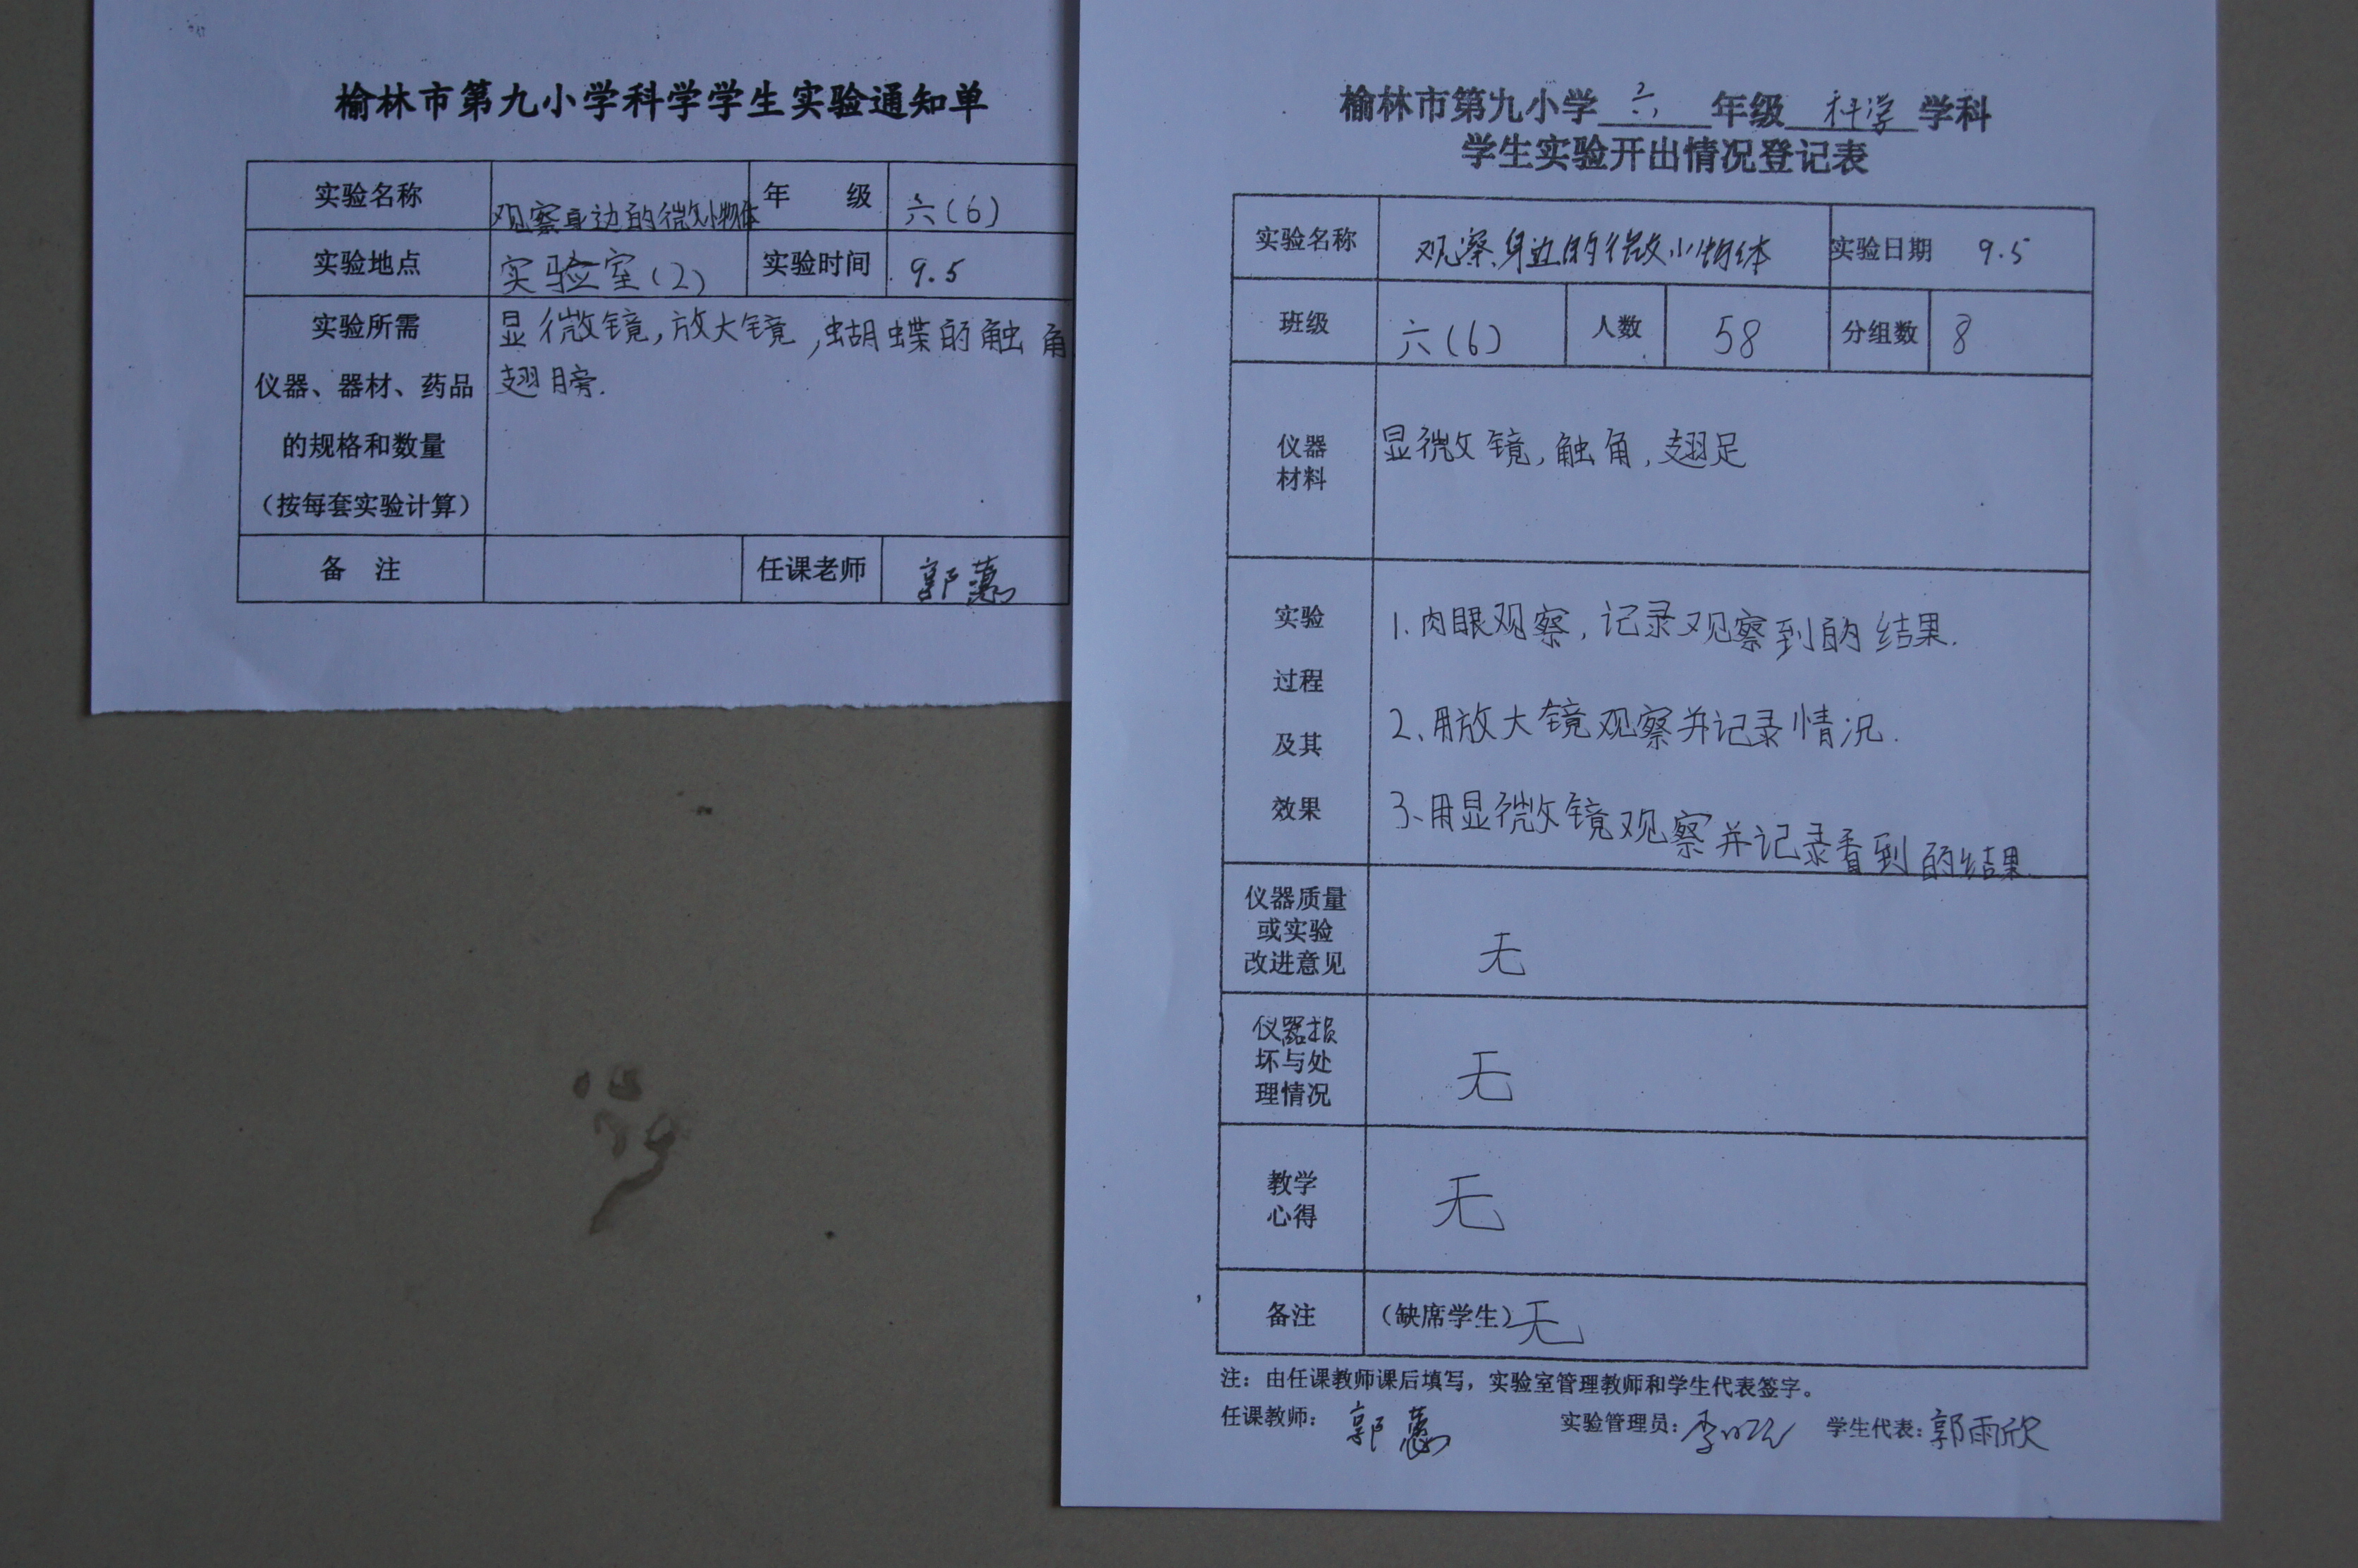 榆林市第九小学科学学生实验通知单
实验名称 观察身边的微小物体 年 级 六(6)
实验地点 实验室(2) 实验时间 9.5
实验所需
仪器、器材、药品
的规格和数量
(按每套实验计算)
显微镜,放大镜,蝴蝶的触角
翅膀.
备 注 任课老师 郭蕙
榆林市第九小学 六 年级 科学 学科
学生实验开出情况登记表
实验名称 观察身边的微小物体 实验日期 9.5
班级 六(6) 人数 58 分组数 8
仪器
材料
显微镜,触角,翅足
实验
过程
及其
效果
1.肉眼观察,记录观察到的结果.
2、用放大镜观察并记录情况.
3、用显微镜观察并记录看到的结果.
仪器质量
或实验
改进意见
无
仪器损
坏与处
理情况
无
教学
心得
无
备注 (缺席学生)无
注:由任课教师课后填写,实验室管理教师和学生代表签字。
任课教师: 郭蕙 实验管理员: 学生代表:郭雨欣